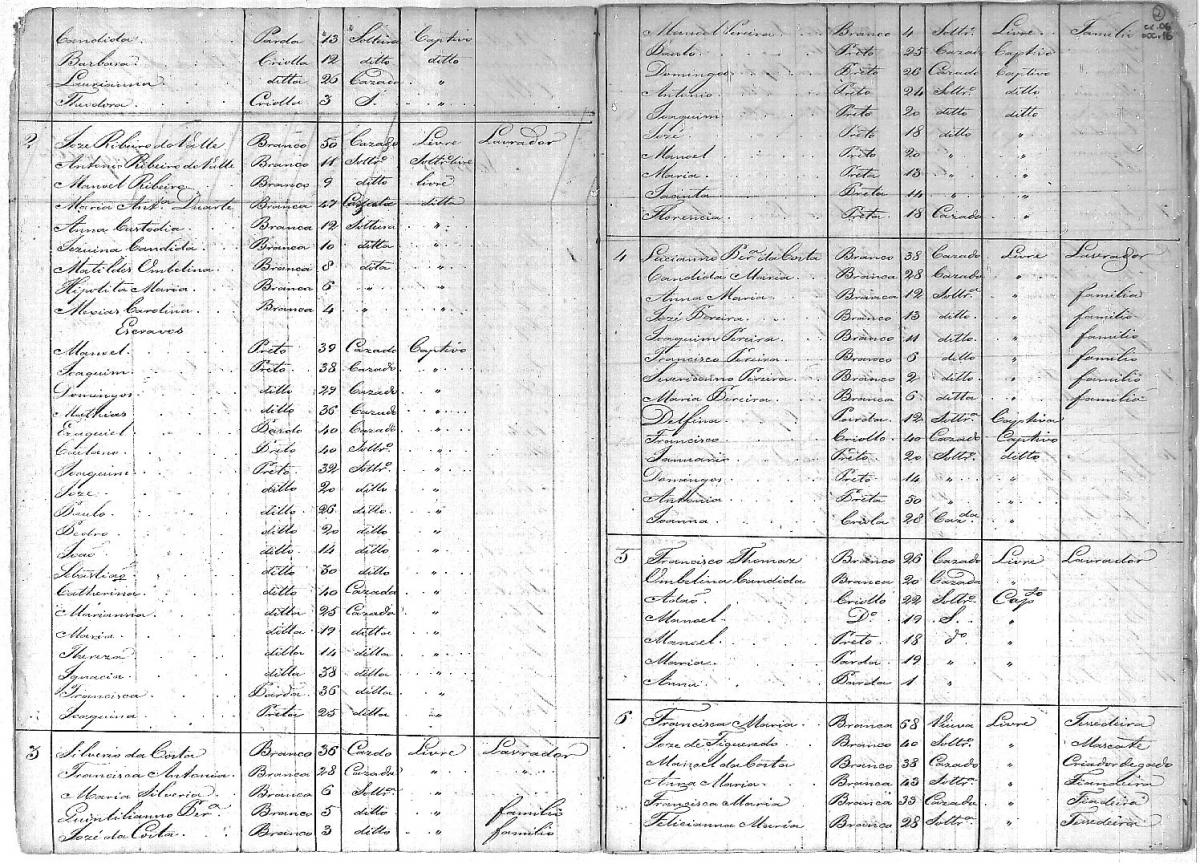 Candida Parda 13 Solteira Captivo
Barbara Criolla 12 ditto ditto
Laurianna ditta 26 Cazada "
Theodora Criolla 3 S. "
2 Joze Ribeiro do Valle Branco 50 Cazado Livre Lavrador
Antonio Ribeiro do Valle Branco 11 Soltrº
Manoel Ribeiro Branco 9 ditto livre
Maria Antª Duarte Branca 47 Cazada ditta
Anna Custodia Branca 12 Solteira "
Jezuina Candida Branca 10 ditta "
Matildes Umbelina Branca 8 dita "
Hipolita Maria Branca 6 " "
Mecias Carolina Branca 4 " "
Escravos
Manoel Preto 39 Cazado Captivo
Joaquim Preto 38 Cazado "
Domingos ditto 29 Cazado "
Mathias ditto 36 Cazado "
Ezaquiel Pardo 40 Cazado "
Caetano Preto 40 Soltrº "
Joaquim Preto 32 Soltrº "
Joze ditto 20 ditto "
Paulo ditto 26 ditto "
Pedro ditto 20 ditto "
João ditto 14 ditto "
Sebastião ditto 30 ditto "
Catherina ditta 40 Cazada "
Marianna ditta 25 Cazada "
Maria ditta 19 ditta "
Thereza ditta 14 ditta "
Ignacia ditta 38 ditta "
Francisca Parda 36 ditta "
Joaquina Preta 25 ditta "
3 Silverio da Costa Branco 36 Cazdo Livre Lavrador
Francisca Antonia Branca 28 Cazada " "
Maria Silveria Branca 6 Soltrª "
Quintilianno Pirª Branco 5 ditto " familio
José da Costa Branco 3 ditto " familio
2
Manoel Pereira Branco 4 Soltrº Livre Familio
Paulo Preto 25 Cazado Captivo
Domingos Preto 26 Cazado Captivo
Antonio Preto 24 Soltrº ditto
Joaquim Preto 20 ditto ditto
José Preto 18 ditto "
Manoel Preto 20 " "
Maria Preta 13 " "
Jacinta Preta 14 " "
Florencia Preta 18 Cazada "
4 Lucianno Pirª da Costa Branco 38 Cazado Livre Lavrador
Candida Maria Branca 28 Cazada "
Anna Maria Branca 12 Soltrª " familia
José Pereira Branco 13 ditto " familio
Joaquim Pereira Branco 11 ditto " familio
Francisco Pereira Branco 6 ditto " familio
Pereira Branco 2 ditto " familio
Maria Pereira Branca 6 ditta " familia
Delfina Parda 12 Soltrª Captiva
Francisco Criollo 40 Cazado Captivo
Januario Preto 20 Soltrº ditto
Domingos Preto 14 " "
Antonia Preta 50 " "
Joanna Criola 28 Cazda "
5 Francisco Thomaz Branco 26 Cazado Livre Lavrador
Umbelina Candida Branca 20 Cazada "
Adão Criollo 22 Soltrº Capto
Manoel Dº 19 S. "
Manoel Preto 18 dº "
Maria Parda 19 " "
Anna Parda 1 " "
6 Francisca Maria Branca 68 Viuva Livre Tecedeira
Joze de Figueredo Branco 40 Soltrº " Mascate
Manoel da Costa Branco 38 Cazado " Criador de gado
Anna Maria Branca 43 Soltrª " Fiandeira
Francisca Maria Branca 33 Cazada " Fiadeira
Felicianna Maria Branca 28 Soltrª " Tecedeira